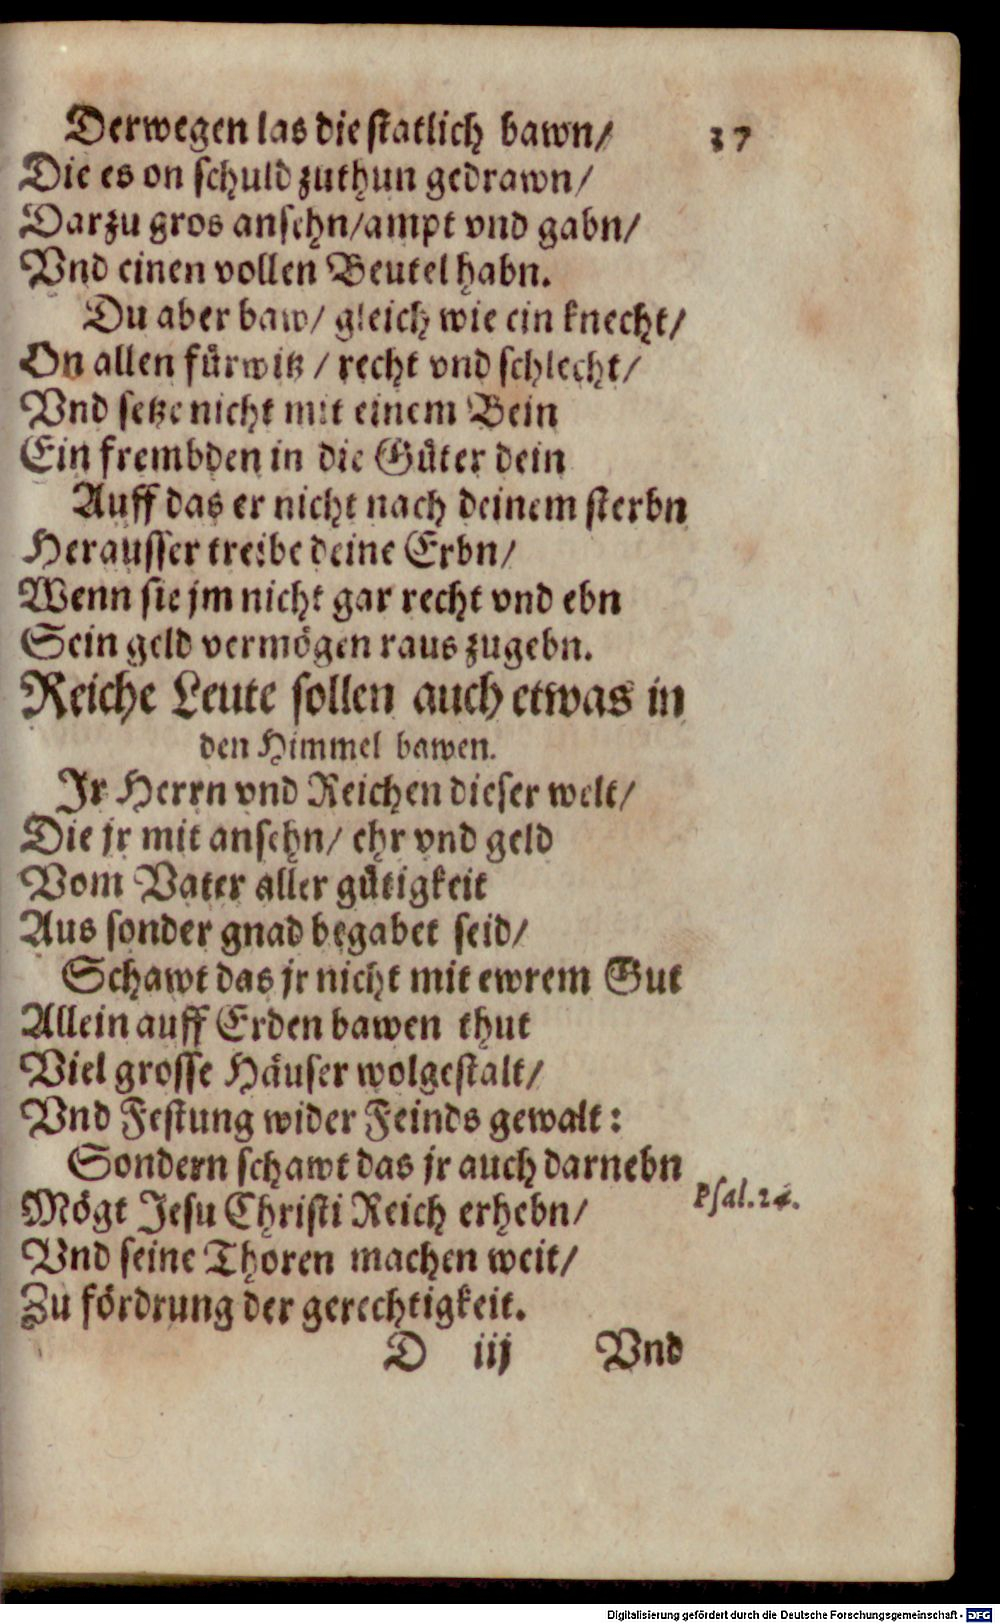 Derwegen las die statlich bawn/
37
Die es on schuld zuthun gedrawn/
Darzu gros ansehn/ampt vnd gabn/
Vnd einen vollen Beutel habn.
Du aber baw/ gleich wie ein knecht/
On allen fürwitz / recht vnd schlecht/
Vnd setze nicht mit einem Bein
Ein frembden in die Güter dein
Auff das er nicht nach deinem sterbn
Herausser treibe deine Erbn/
Wenn sie jm nicht gar recht vnd ebn
Sein geld vermögen raus zugebn.
Reiche Leute sollen auch etwas in
den Himmel bawen.
Jr Herrn vnd Reichen dieser welt/
Die jr mit ansehn/ ehr vnd geld
Vom Vater aller gütigkeit
Aus sonder gnad begabet seid/
Schawt das jr nicht mit ewrem Gut
Allein auff Erden bawen thut
Viel grosse Häuser wolgestalt/
Vnd Festung wider Feinds gewalt:
Sondern schawt das jr auch darnebn
Psal.24.
Mögt Jesu Christi Reich erhebn/
Vnd seine Thoren machen weit/
Zu fördrung der gerechtigkeit.
D iij Vnd
Digitalisierung gefördert durch die Deutsche Forschungsgemeinschaft - DFG